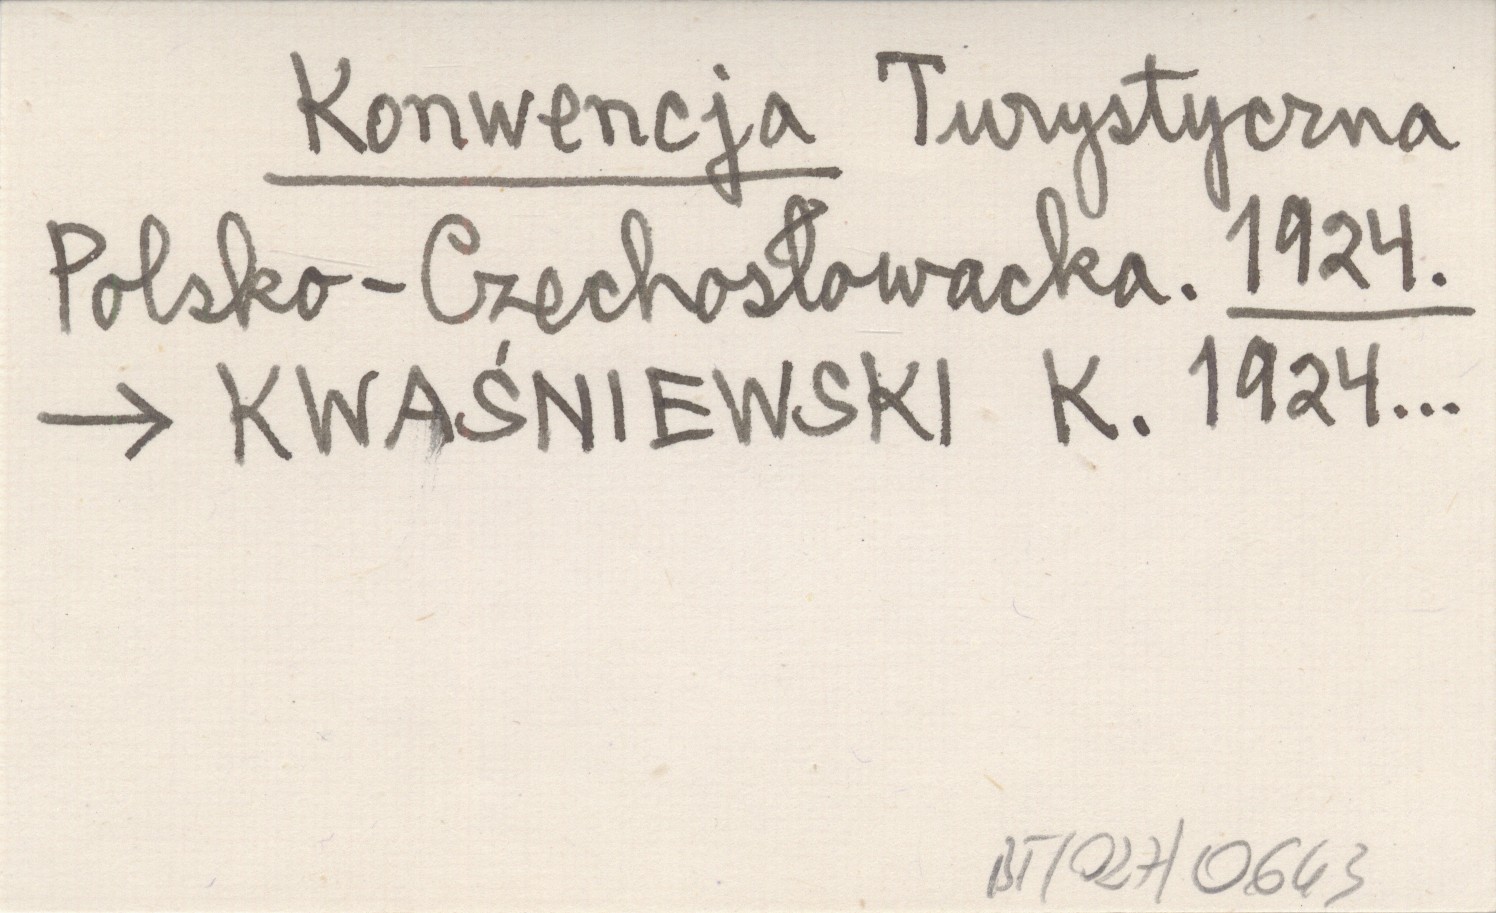 Konwencja Turystyczna
Polsko-Czechosłowacka. 1924.
→ KWAŚNIEWSKI K. 1924...
BT/027/0643